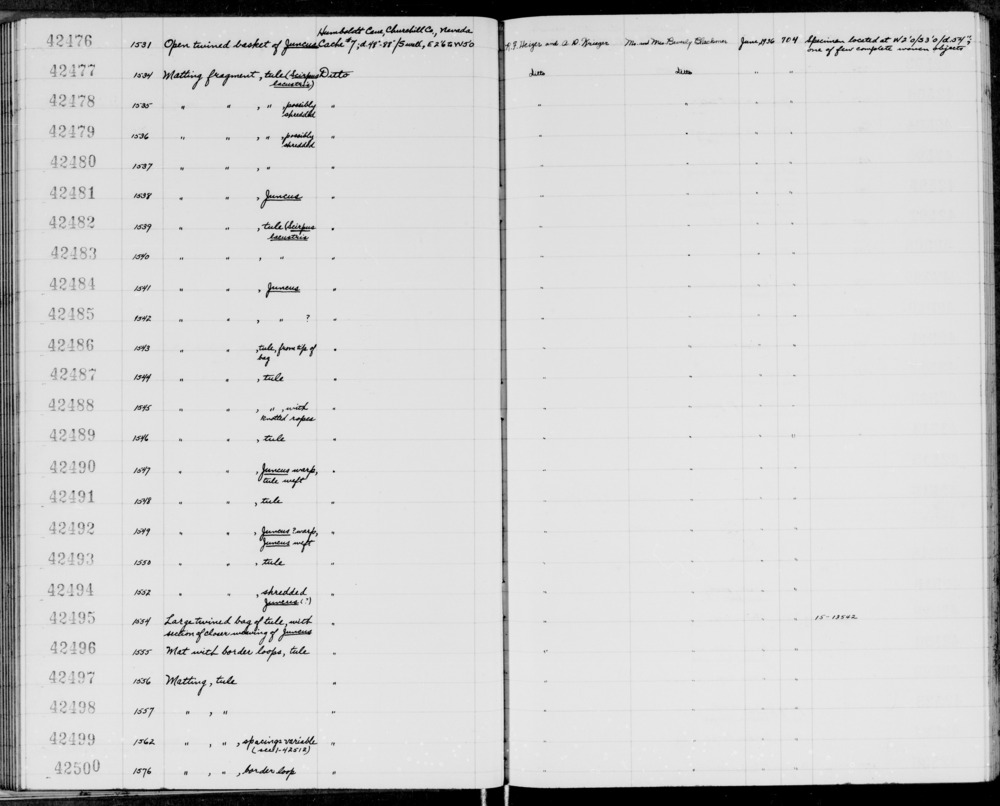 Humboldt Cave, Churchill Co., Nevada
42476 1531 Open twined basket of Juncus Cache #7; d. 48"-88"/South, E265 W50 R.F. Heizer and A.D. Krieger Mr. and Mrs. June 1936 704 Specimen located at W2'0/S3'0/d.54";
one of few complete woven objects
42477 1534 Matting fragment, tule (Scirpus Ditto ditto ditto " "
lacustris)
42478 1535 " " , " , possibly " " " " "
shredded
42479 1536 " " , " , possibly " " " " "
shredded
42480 1537 " " , " " " " " "
42481 1538 " " , Juncus " " " " "
42482 1539 " " , tule (Scirpus " " " " "
lacustris
42483 1540 " " , " " " " " "
42484 1541 " " , Juncus " " " " "
42485 1542 " " , " ? " " " " "
42486 1543 " " , tule, from tip of " " " " "
bag
42487 1544 " " , tule " " " " "
42488 1545 " " , " , with " " " " "
knotted ropes
42489 1546 " " , tule " " " " "
42490 1547 " " , Juncus warp, " " " " "
tule weft
42491 1548 " " , tule " " " " "
42492 1549 " " , Juncus ? warp, " " " " "
Juncus weft
42493 1550 " " , tule " " " " "
42494 1552 " " , shredded " " " " "
Juncus (?)
42495 1554 Large twined bag of tule, with " " " " " 15-13542
section of closer weaving of Juncus
42496 1555 Mat with border loops, tule " " " " "
42497 1556 Matting, tule " " " " "
42498 1557 " , " " " " " "
42499 1562 " , " , spacings variable " " " " "
(see 1-42512)
42500 1576 " , " , border loop " " " " "